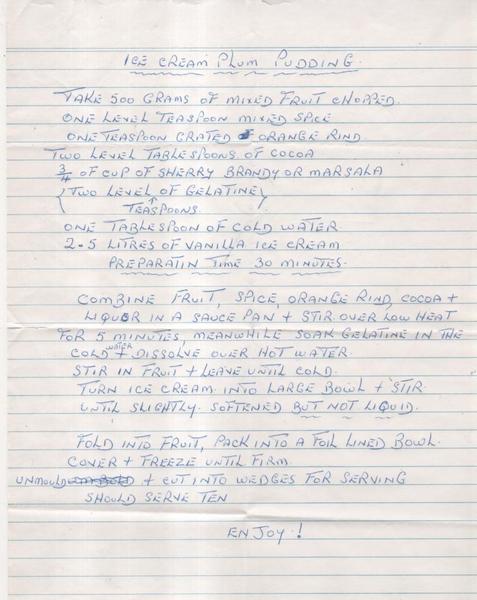 ICE CREAM PLUM PUDDING.
TAKE 500 GRAMS OF MIXED FRUIT CHOPPED.
ONE LEVEL TEASPOON MIXED SPICE
ONE TEASPOON GRATED ORANGE RIND.
TWO LEVEL TABLESPOONS OF COCOA
3/4 OF CUP OF SHERRY BRANDY OR MARSALA
(TWO LEVEL OF GELATINE)
TEASPOONS.
ONE TABLESPOON OF COLD WATER.
2-5 LITRES OF VANILLA ICE CREAM
PREPARATIN TIME 30 MINUTES.
COMBINE FRUIT, SPICE, ORANGE RIND, COCOA +
LIQUOR IN A SAUCE PAN + STIR OVER LOW HEAT
FOR 5 MINUTES, MEANWHILE SOAK GELATINE IN THE
COLD WATER + DISSOLVE OVER HOT WATER.
STIR IN FRUIT + LEAVE UNTIL COLD.
TURN ICE CREAM INTO LARGE BOWL + STIR
UNTIL SLIGHTLY. SOFTENED BUT NOT LIQUID.
FOLD INTO FRUIT, PACK INTO A FOIL LINED BOWL.
COVER + FREEZE UNTIL FIRM.
UNMOULD + CUT INTO WEDGES FOR SERVING
SHOULD SERVE TEN
ENJOY.!